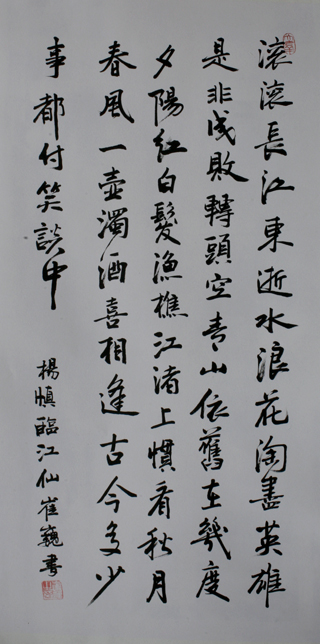 滚滚長江東逝水浪花淘盡英雄
是非成敗轉頭空青山依舊在幾度
夕陽紅白髮漁樵江渚上慣看秋月
春風一壺濁酒喜相逢古今多少
事都付笑談中
楊慎臨江仙崔巍書